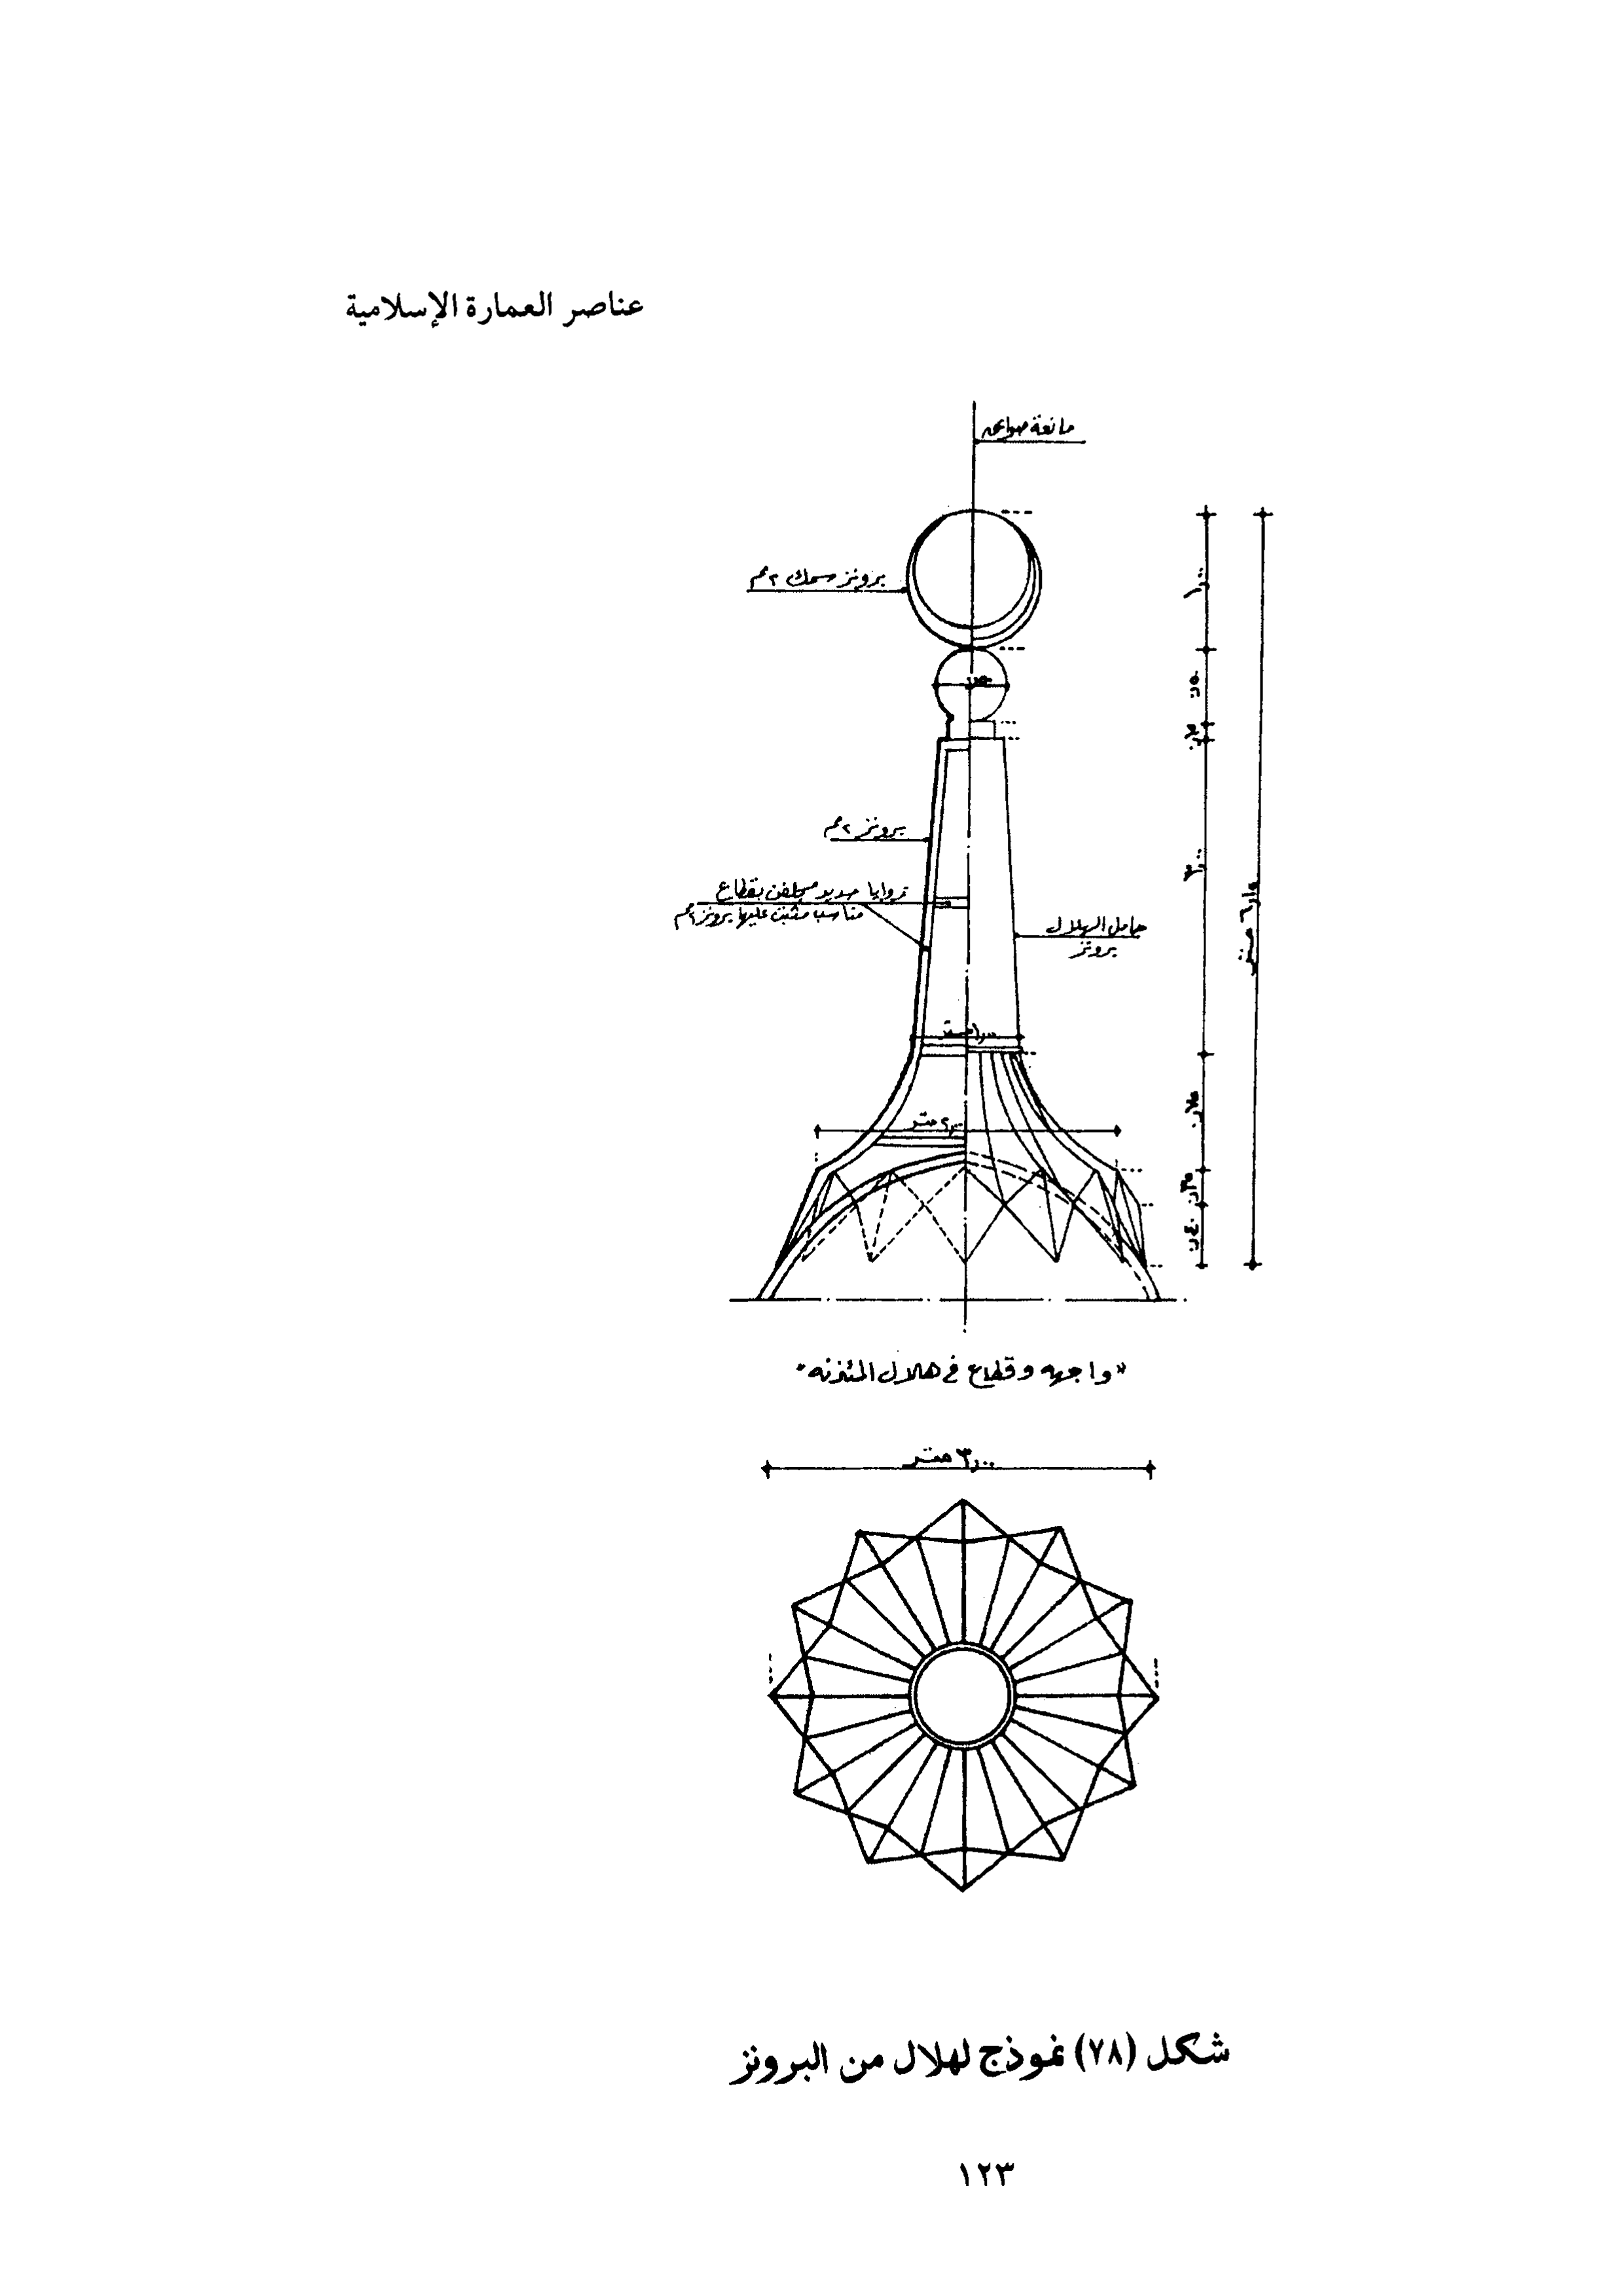 عناصر العمارة الإسلامية
مانعة صواعق
برونز سمك ٢مم
١٫٠٠
٫٥٠
٫٥٠
برونز ٢مم
٣٫٠٠
زوايا حديد مجلفن بقطاع
مناسب مثبت عليها برونز ٢مم
حامل الهلال
برونز
متر
١٫٠٠ متر
متر
٫٤٠
"واجهه وقطاع في هلال المئذنه"
٣٫٠٠ متر
شكل (٧٨) نموذج لهلال من البرونز
١٢٣